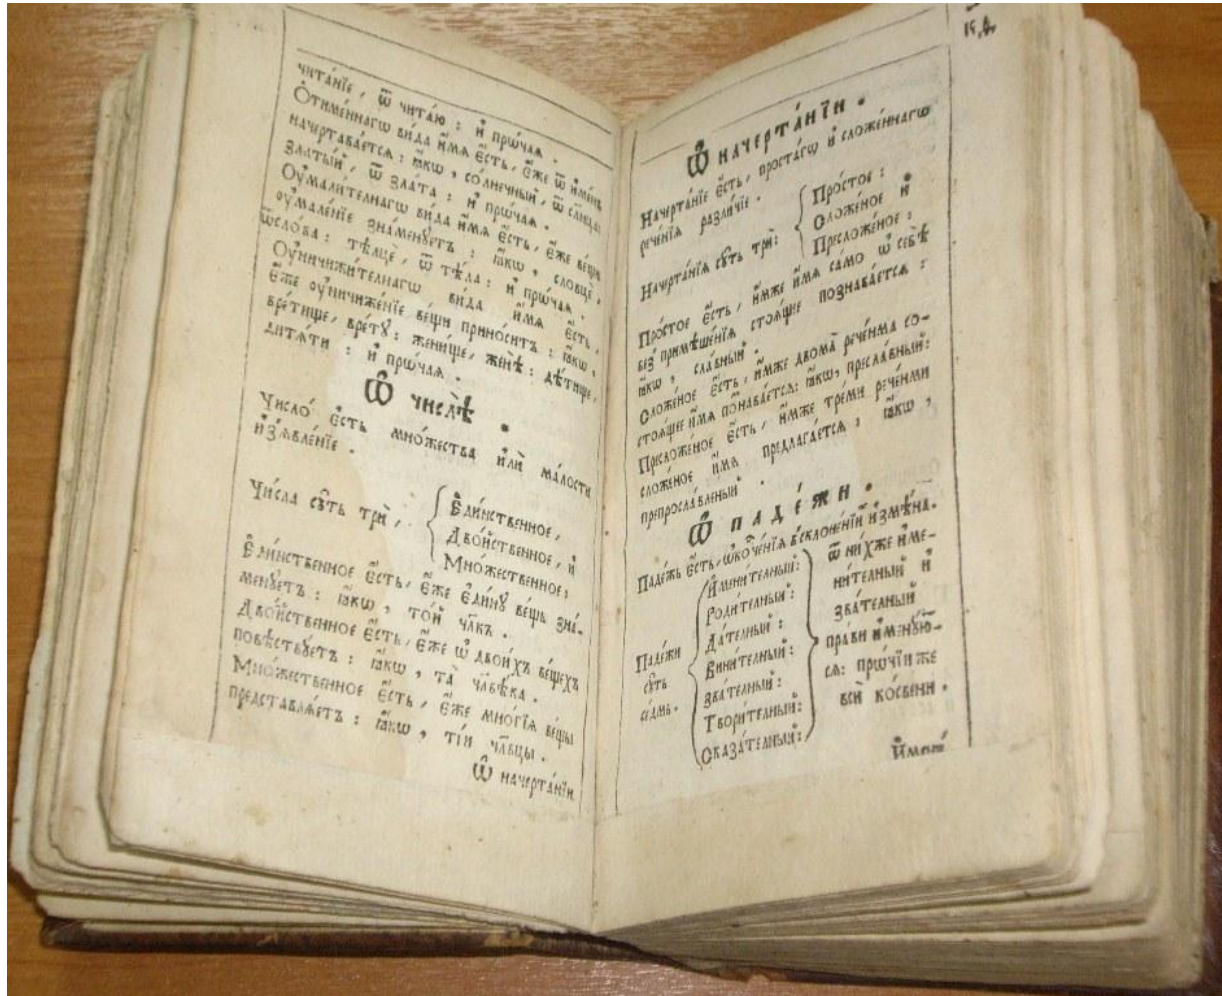 чита́нїе, ѿ чита́ю: и҆ прѡ́чаѧ.
Ѻ҆тиме́ннагѡ ви́да и҆́мѧ є҆́сть, є҆́же ѿ и҆ме́нъ
начертава́етсѧ: ꙗ҆́кѡ, со́лнечный, ѿ сл҃нца:
зла́тый, ѿ зла́та: и҆ прѡ́чаѧ.
Оу҆мали́телнагѡ ви́да и҆́мѧ є҆́сть, є҆́же ве́щи
оу҆мале́нїе зна́менꙋетъ: ꙗ҆́кѡ, словцѐ,
ѿсло́ва: тѣлцѐ, ѿ тѣ́ла: и҆ прѡ́чаѧ.
Оу҆ничижи́телнагѡ ви́да и҆́мѧ є҆́сть,
є҆́же оу҆ничиже́нїе ве́щи прино́ситъ: ꙗ҆́кѡ,
вре́тище, вре́тꙋ: жени́ще, женѣ̀: дѣ́тище,
дитѧ́ти: и҆ прѡ́чаѧ.
Ѽ числѣ̀.
Число̀ є҆́сть мно́жества и҆лѝ ма́лости
и҆з̾ѧвле́нїе.
Чи́сла сꙋ́ть трѝ,
Е҆ди́нственное,
Дво́йственное, и҆
Мно́жественное;
Е҆ди́нственное є҆́сть, є҆́же є҆ди́нꙋ ве́щь зна́-
менꙋетъ: ꙗ҆́кѡ, то́й чл҃къ.
Дво́йственное є҆́сть, є҆́же ѡ҆ двои́хъ ве́щехъ
повѣ́ствꙋетъ: ꙗ҆́кѡ, та̀ чл҃вѣ́ка.
Мно́жественное є҆́сть, є҆́же мно́гїѧ ве́щы
представлѧ́етъ: ꙗ҆́кѡ, ті́и чл҃вцы.
Ѽ начерта́нїи
Ѽ начерта́нїи.
Начерта́нїе є҆́сть, проста́гѡ и҆ сложе́ннагѡ
рече́нїѧ разли́чїе.
Начерта́нїѧ сꙋ́ть трѝ:
Просто́е:
Сложе́ное и҆
Пресложе́ное:
Просто́е є҆́сть, и҆́мже и҆́мѧ само̀ ѡ҆ себѣ̀
без̾ примѣше́нїѧ стоѧ́щее познава́етсѧ:
ꙗ҆́кѡ, сла́вный.
Сложе́ное є҆́сть, и҆́мже двома̀ рече́нма со-
стоѧ́щее и҆́мѧ познава́етсѧ: ꙗ҆́кѡ, пресла́вный:
Пресложе́ное є҆́сть, и҆́мже тре́ми рече́нми
сложе́ное и҆́мѧ предлага́етсѧ: ꙗ҆́кѡ,
препросла́вленый.
Ѽ паде́жи.
Паде́жъ є҆́сть, ѡ҆конче́нїѧ въсклоне́нїи и҆змѣ́на.
Паде́жи
сꙋ́ть
се́дмь.
И҆мени́телный:
Роди́телный:
Да́телный:
Вини́телный:
Зва́телный:
Твори́телный:
Сказа́телный:
ѿ ни́хже и҆ме-
ни́телный и҆
зва́телный
пра́ви и҆менꙋ́ю-
сѧ: прѡ́чїи же
всѝ ко́свени.